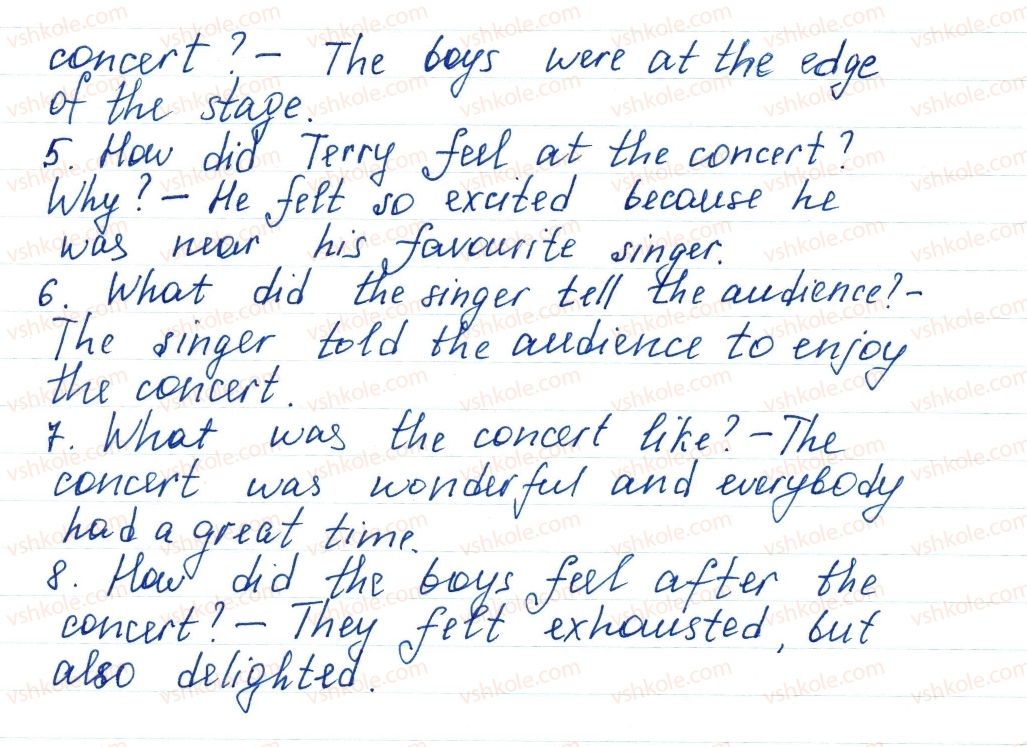 concert? - The boys were at the edge
of the stage.
5. How did Terry feel at the concert?
Why? - He felt so excited because he
was near his favourite singer.
6. What did the singer tell the audience? -
The singer told the audience to enjoy
the concert.
7. What was the concert like? - The
concert was wonderful and everybody
had a great time.
8. How did the boys feel after the
concert? - They felt exhausted, but
also delighted.